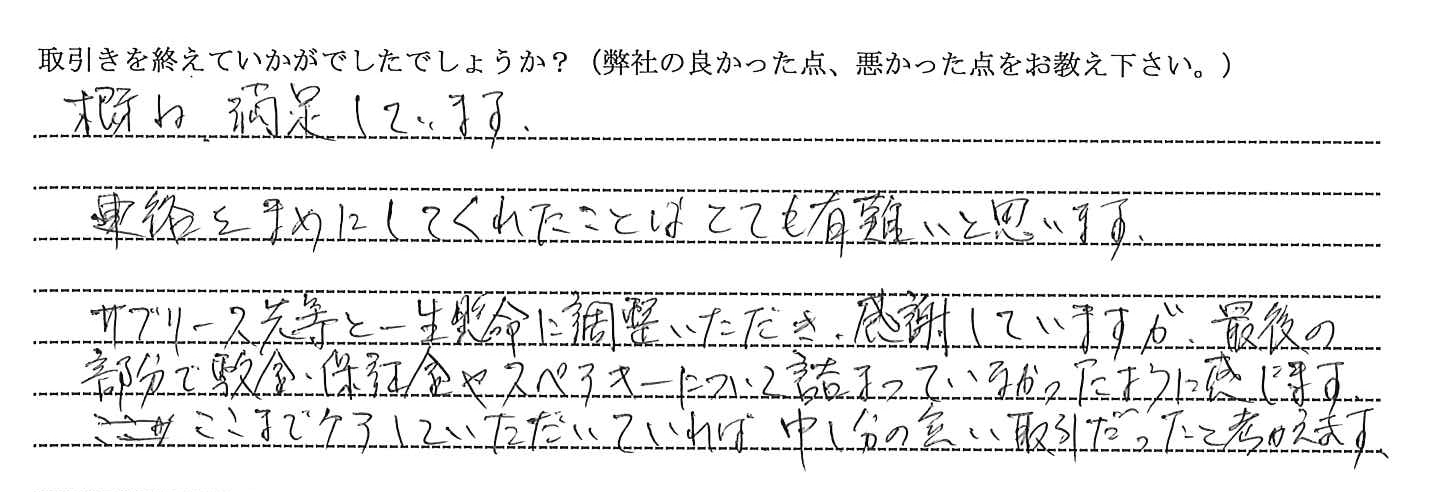 取引きを終えていかがでしたでしょうか？（弊社の良かった点、悪かった点をお教え下さい。）
概ね、満足しています。
連絡をまめにしてくれたことはとても有難いと思います。
サブリース先等と一生懸命に調整いただき、感謝していますが、最後の
部分で敷金・保証金やスペアキーについて詰まっていなかったように感じます。
ここまでケアしていただいていれば、申し分の無い取引だったと考えます。